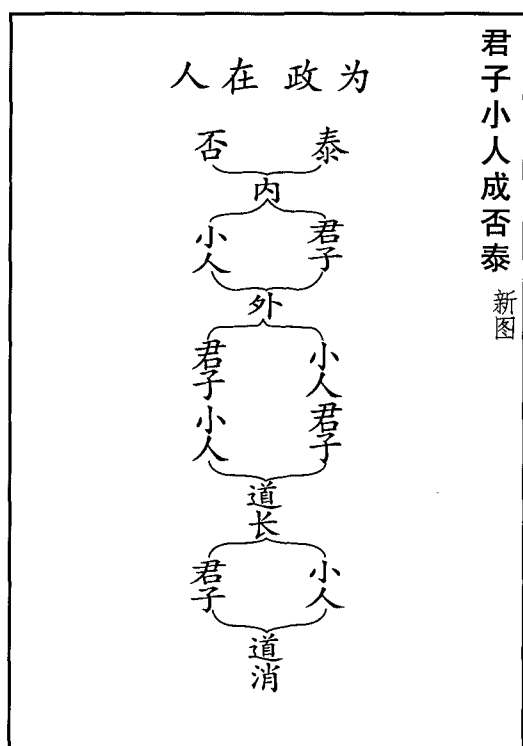 君子小人成否泰
新图
为政在人
泰
否
内
君子
小人
外
小人君子
君子小人
道长
小人
君子
道消